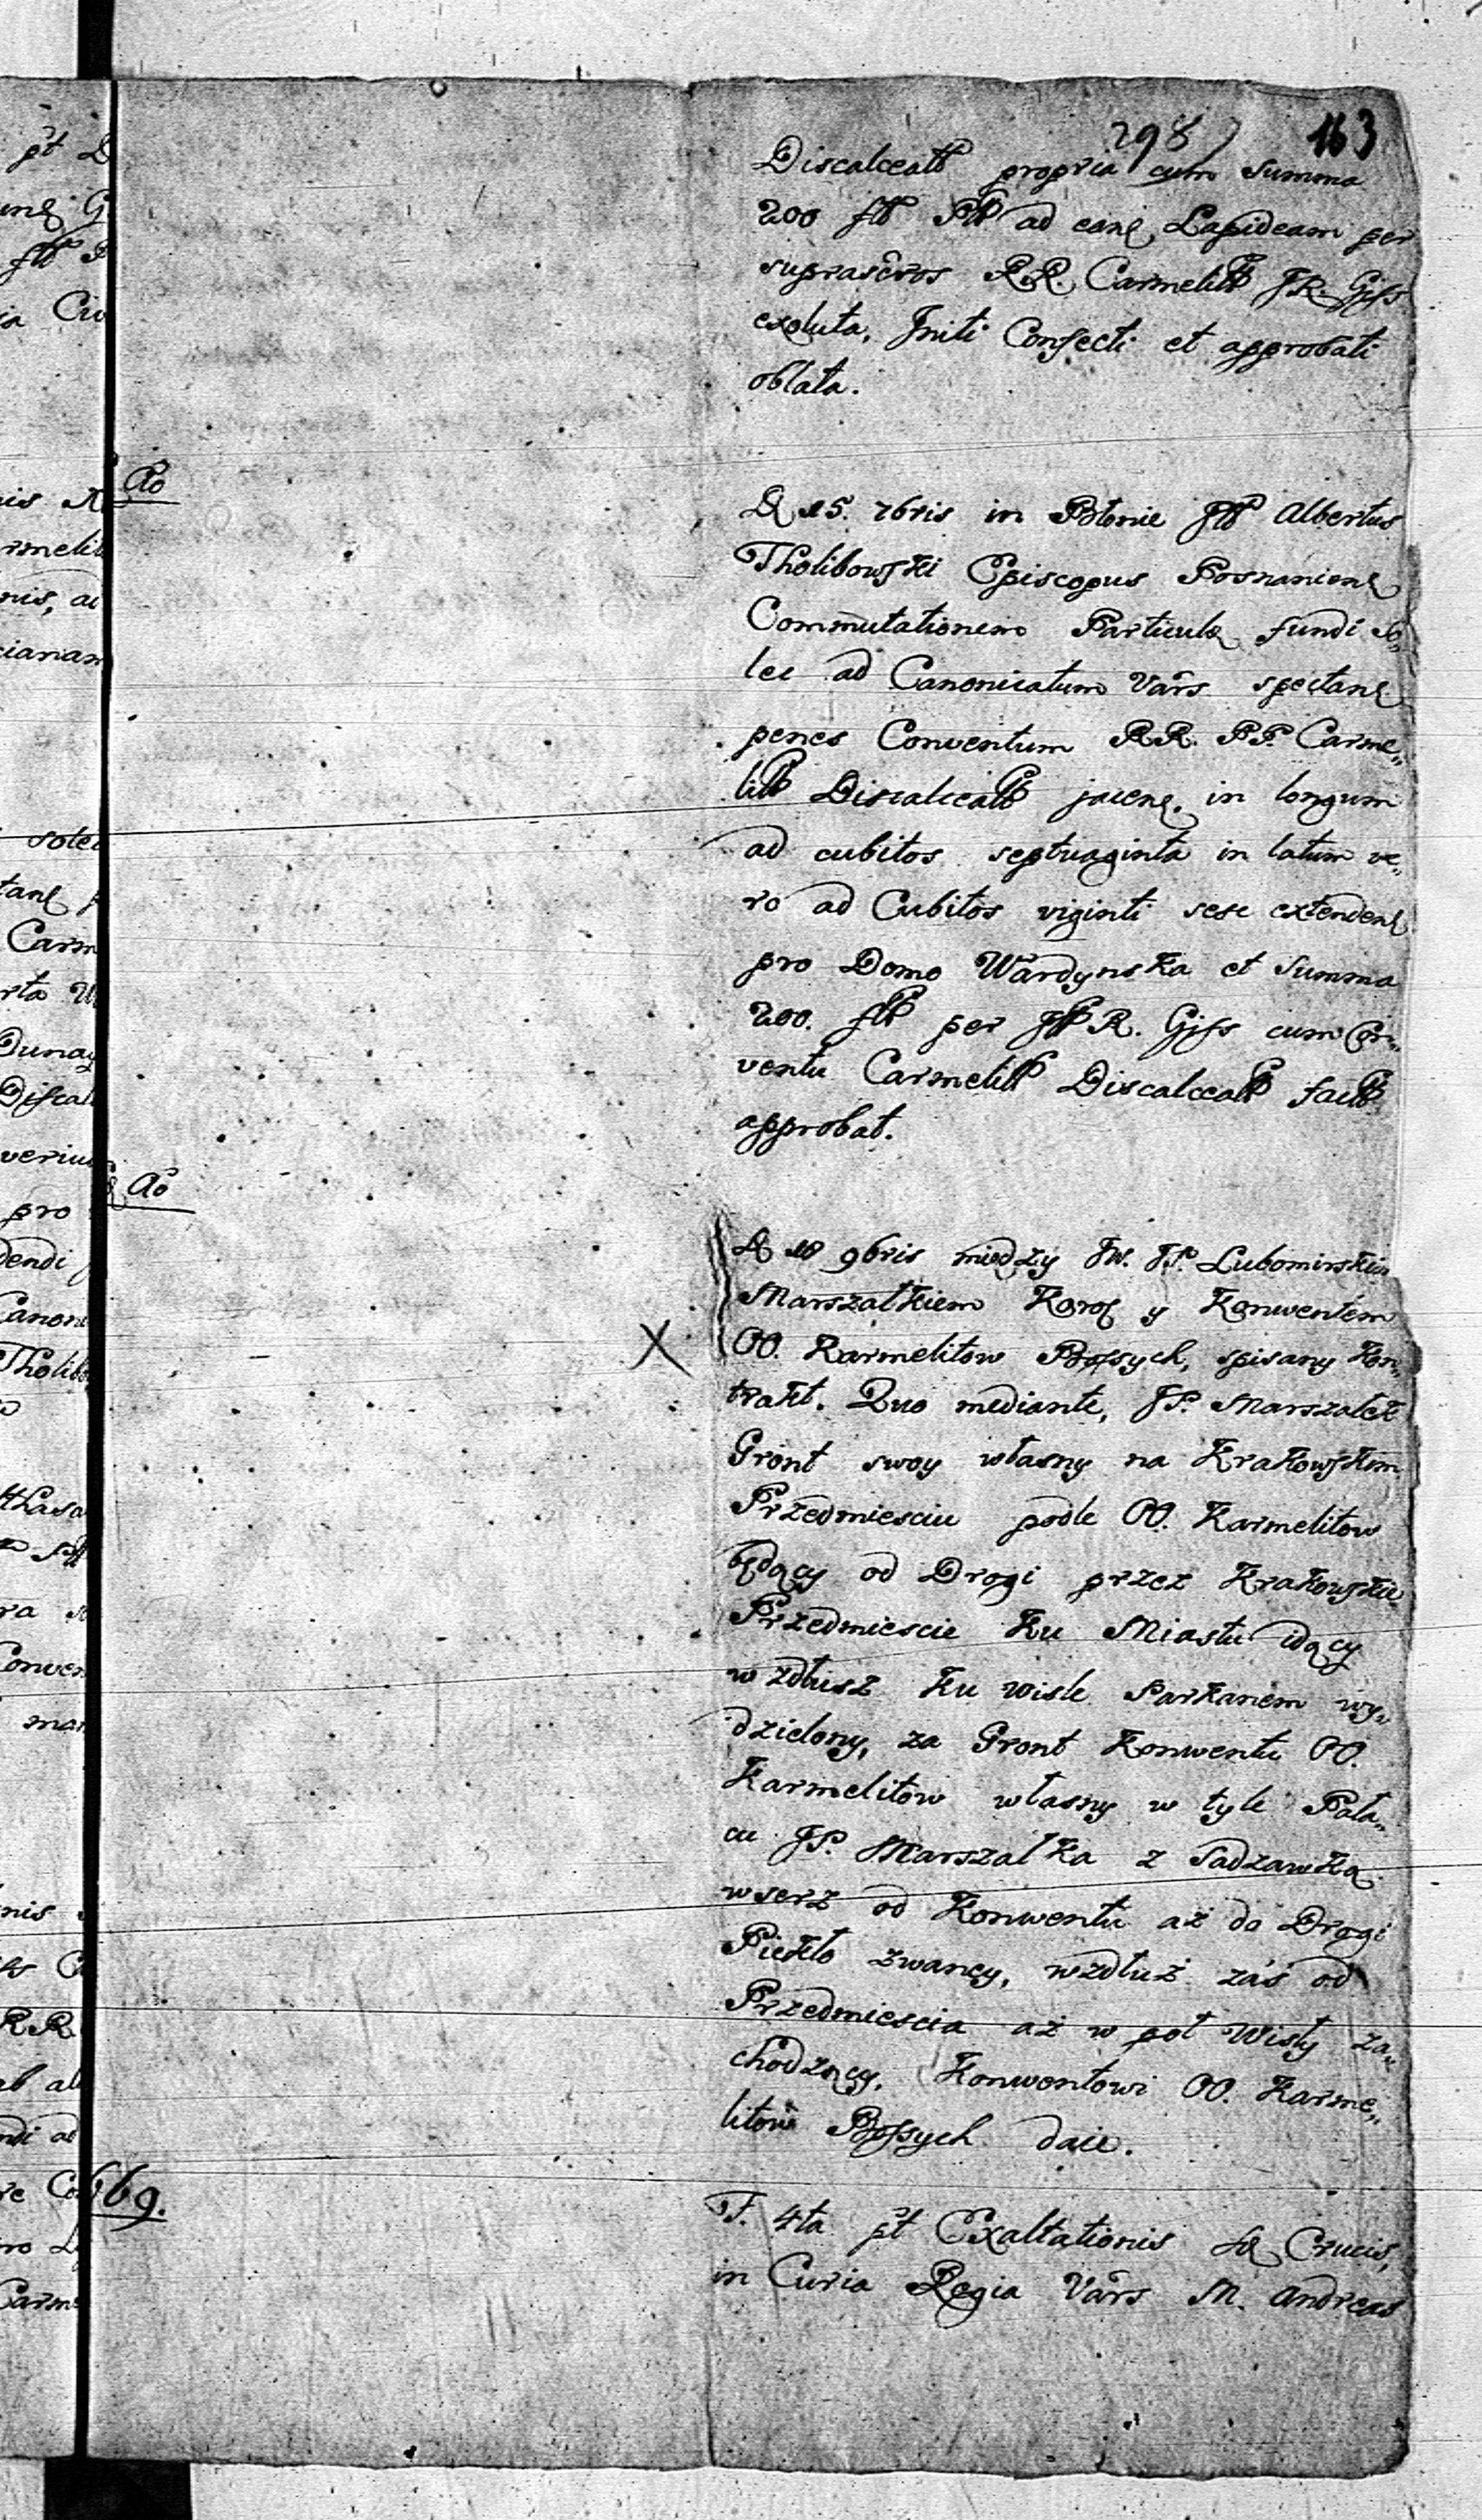 298 163
Discalceat propria cum Summa
200 fl Pll ad eand Lapideam per
suprascros RR. Carmelit J.R. Giss
exoluta, Initi Confecti et approbati
oblata.
Ao
D 15. 7bris in Błonie Jll Albertus
Tholibowski Episcopus Posnaniens
Commutationem Particulæ fundi So„
lei ad Canonicatum Vars spectans
penes Conventum RR. PP. Carme„
lit Discalceat jacens. in longum
ad cubitos septuaginta in latum ve„
ro ad Cubitos viginti sese extendens
pro Domo Wardynska et Summa
200. fl per R. Giss cum Con„
ventu Carmelit Discalceat fact
approbat.
Ao
D 10 9bris miedzy JW. JP. Lubomirskim
Marszałkiem Koros y Konwentem
X OO. Karmelitow Bossych, spisany Kon„
trakt. Quo mediante, JP. Marszałek
Gront swoy własny na Krakowskim
Przedmiesciu podle OO. Karmelitow
będący od Drogi przez Krakowskie
Przedmiescie Ku Miastu idący
wzdłusz Ku Wisle Parkanem wy„
dzielony, za Gront Konwentu OO.
Karmelitow własny w tyle Pała„
cu JP. Marszałka z Sadzawką
wserz od Konwentu aż do Drogi
Piekło zwaney, wzdłuż zaś od
Przedmiescia aż w poł Wisły za„
chodzący, Konwentowi OO. Karme„
litow Bossych daie.
669.
F. 4ta pt Exaltationis Crucis,
in Curia Regia Vars M. Andreas